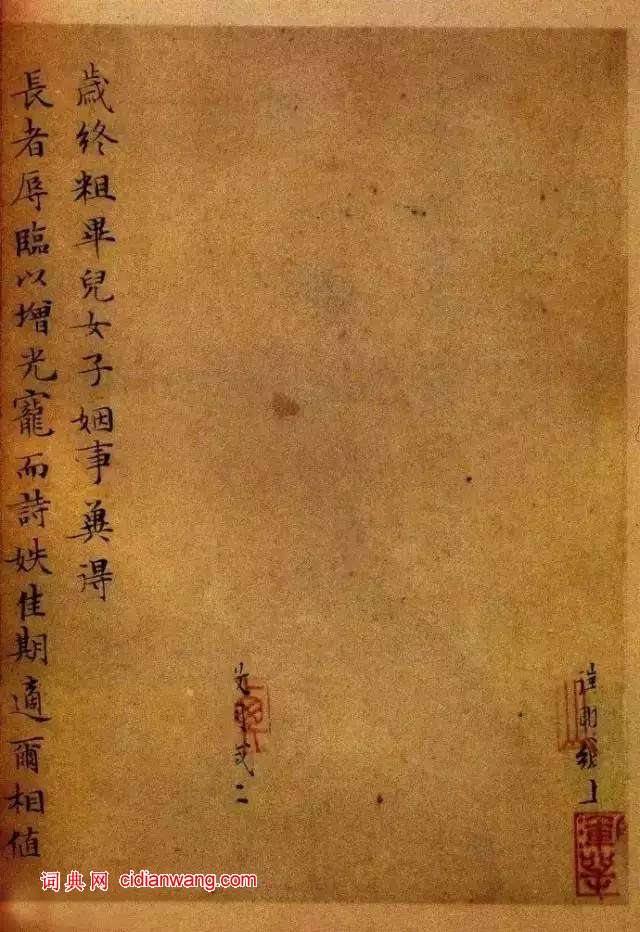 歳终粗畢兒女子姻事兾得
長者辱臨以增光寵而詩妷佳期適爾相值
词典网 cidianwang.com